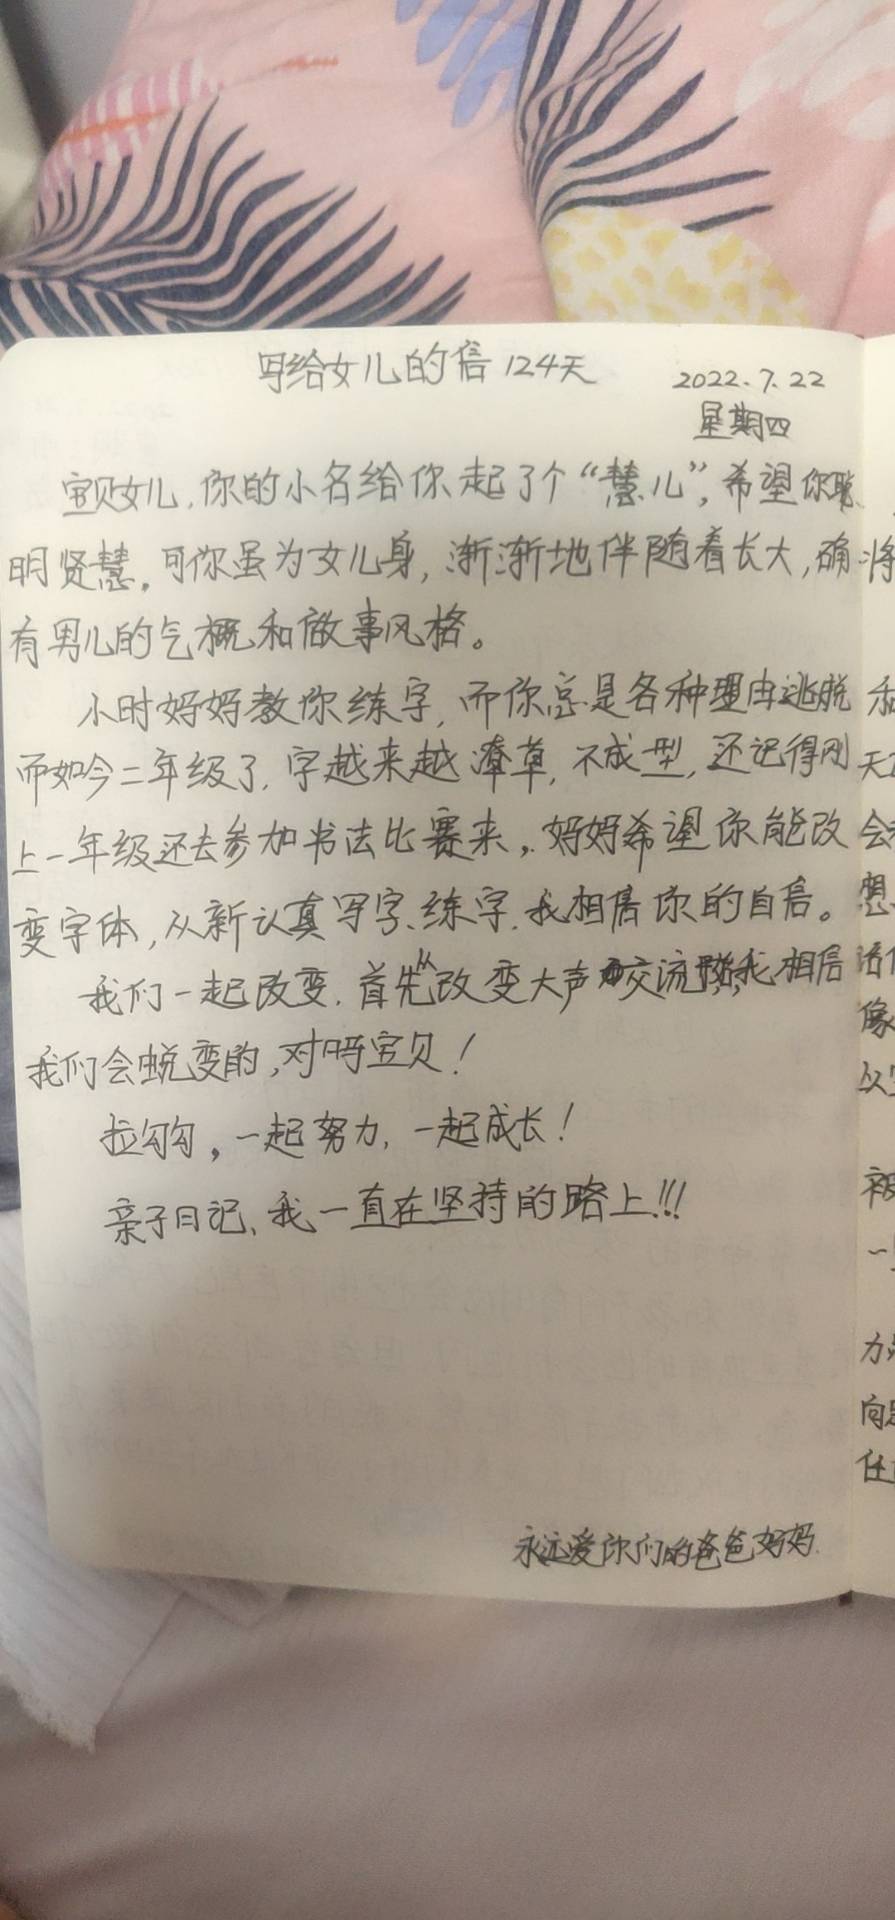 写给女儿的信 124天
2022.7.22
星期四
宝贝女儿，你的小名给你起了个“慧儿”，希望你聪
明贤慧。可你虽为女儿身，渐渐地伴随着长大，确
有男儿的气概和做事风格。
小时妈妈教你练字，而你总是各种理由逃脱
而如今二年级了，字越来越潦草，不成型，还记得刚
上一年级还去参加书法比赛来，妈妈希望你能改
变字体，从新认真写字、练字，我相信你的自信。
我们一起改变，首先从改变大声交流，我相信
我们会蜕变的，对吗宝贝！
拉勾勾，一起努力，一起成长！
亲子日记、我一直在坚持的路上!!!
永远爱你们的爸爸妈妈.
将
天
会
想
话
像
以
被
一
力
向
任